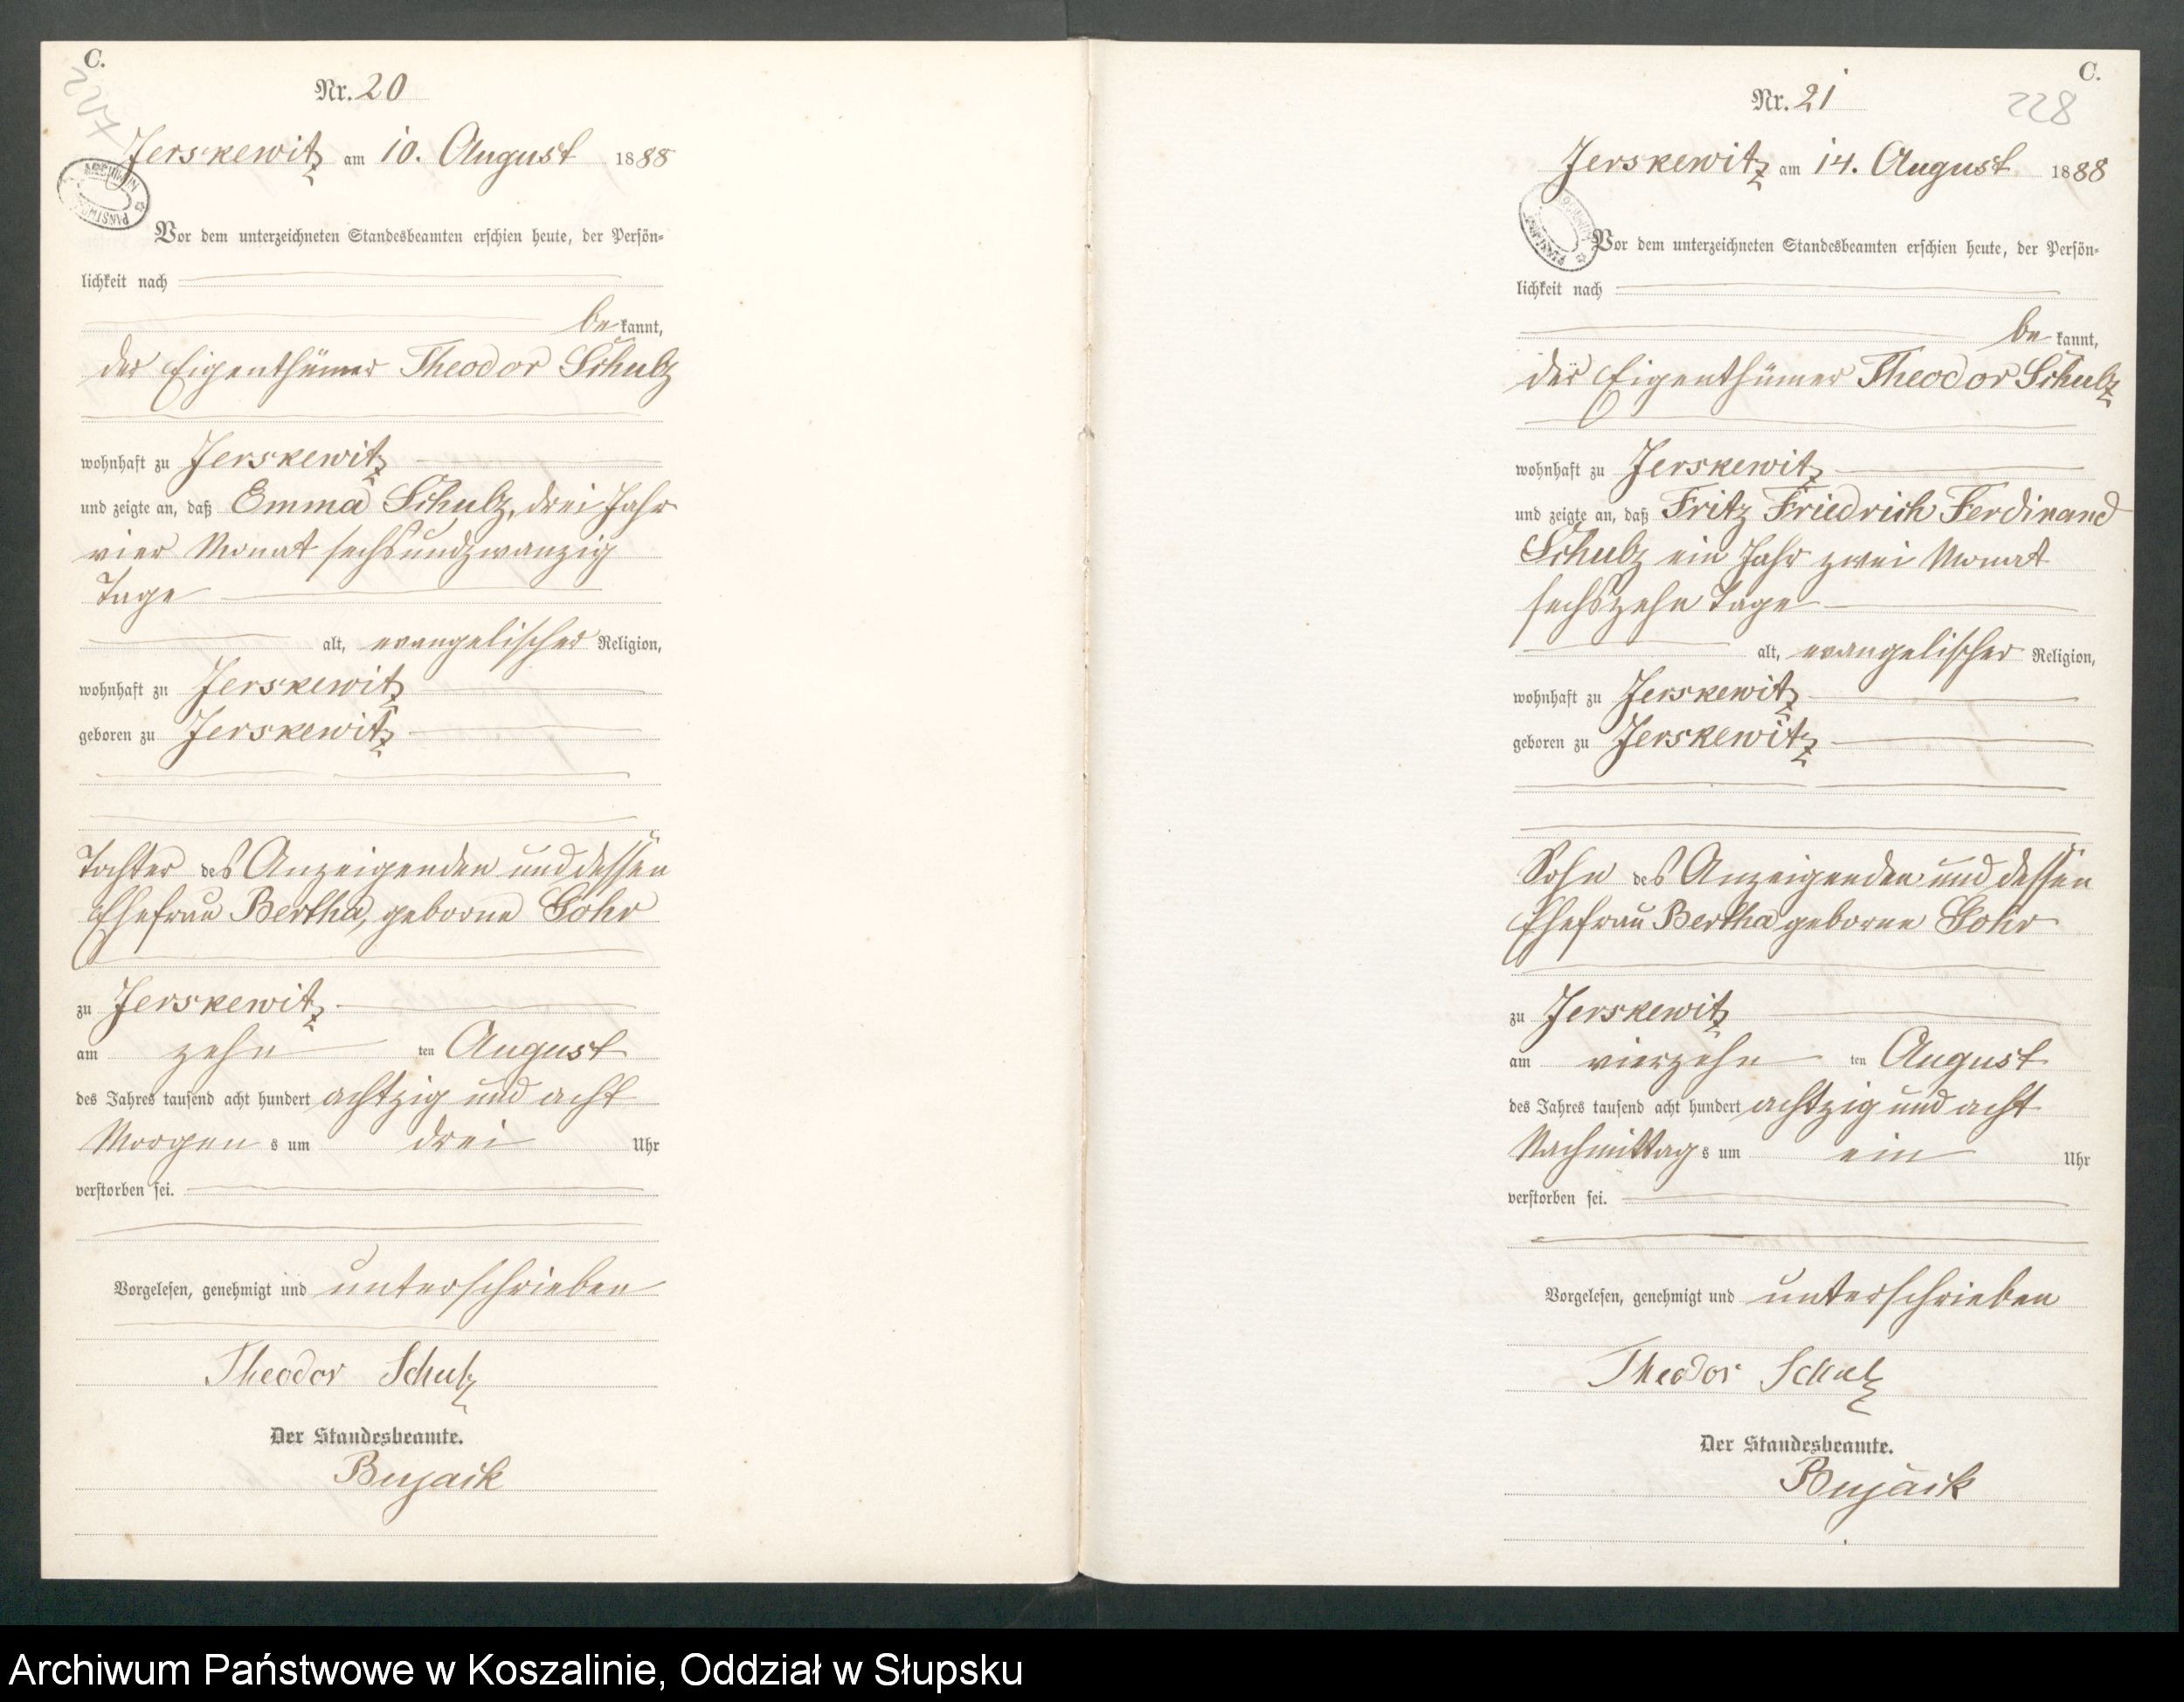 C.
227
Nr. 20
Jerskewitz am 10. August 1888
ARCHIWUM PAŃSTW
Vor dem unterzeichneten Standesbeamten erschien heute, der Persön-
lichkeit nach
be kannt,
der Eigenthümer Theodor Schulz
wohnhaft zu Jerskewitz
und zeigte an, daß Emma Schulz, drei Jahr
vier Monat sechsundzwanzig
Tage
alt, evangelischer Religion,
wohnhaft zu Jerskewitz
geboren zu Jerskewitz
Tochter des Anzeigenden und dessen
Ehefrau Bertha, geborne Gohr
zu Jerskewitz
am zehn ten August
des Jahres tausend acht hundert achtzig und acht
Morgen s um drei Uhr
verstorben sei.
Vorgelesen, genehmigt und unterschrieben
Theodor Schulz
Der Standesbeamte.
Bujack
C.
228
Nr. 21
Jerskewitz am 14. August 1888
Vor dem unterzeichneten Standesbeamten erschien heute, der Persön-
lichkeit nach
be kannt,
der Eigenthümer Theodor Schulz
wohnhaft zu Jerskewitz
und zeigte an, daß Fritz Friedrich Ferdinand
Schulz ein Jahr zwei Monat
sechszehn Tage
alt, evangelischer Religion,
wohnhaft zu Jerskewitz
geboren zu Jerskewitz
Sohn des Anzeigenden und dessen
Ehefrau Bertha geborne Gohr
zu Jerskewitz
am vierzehn ten August
des Jahres tausend acht hundert achtzig und acht
Nachmittag s um ein Uhr
verstorben sei.
Vorgelesen, genehmigt und unterschrieben
Theodor Schulz
Der Standesbeamte.
Bujack
Archiwum Państwowe w Koszalinie, Oddział w Słupsku